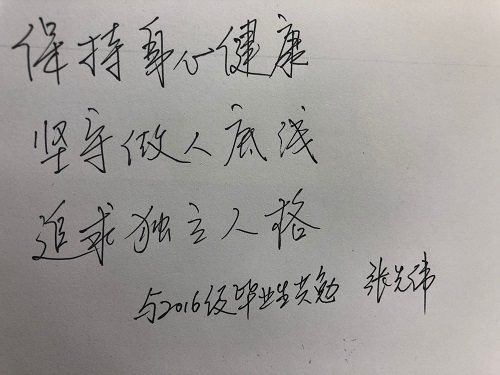 保持身心健康
坚守做人底线
追求独立人格
与2016级毕业生共勉 张先伟